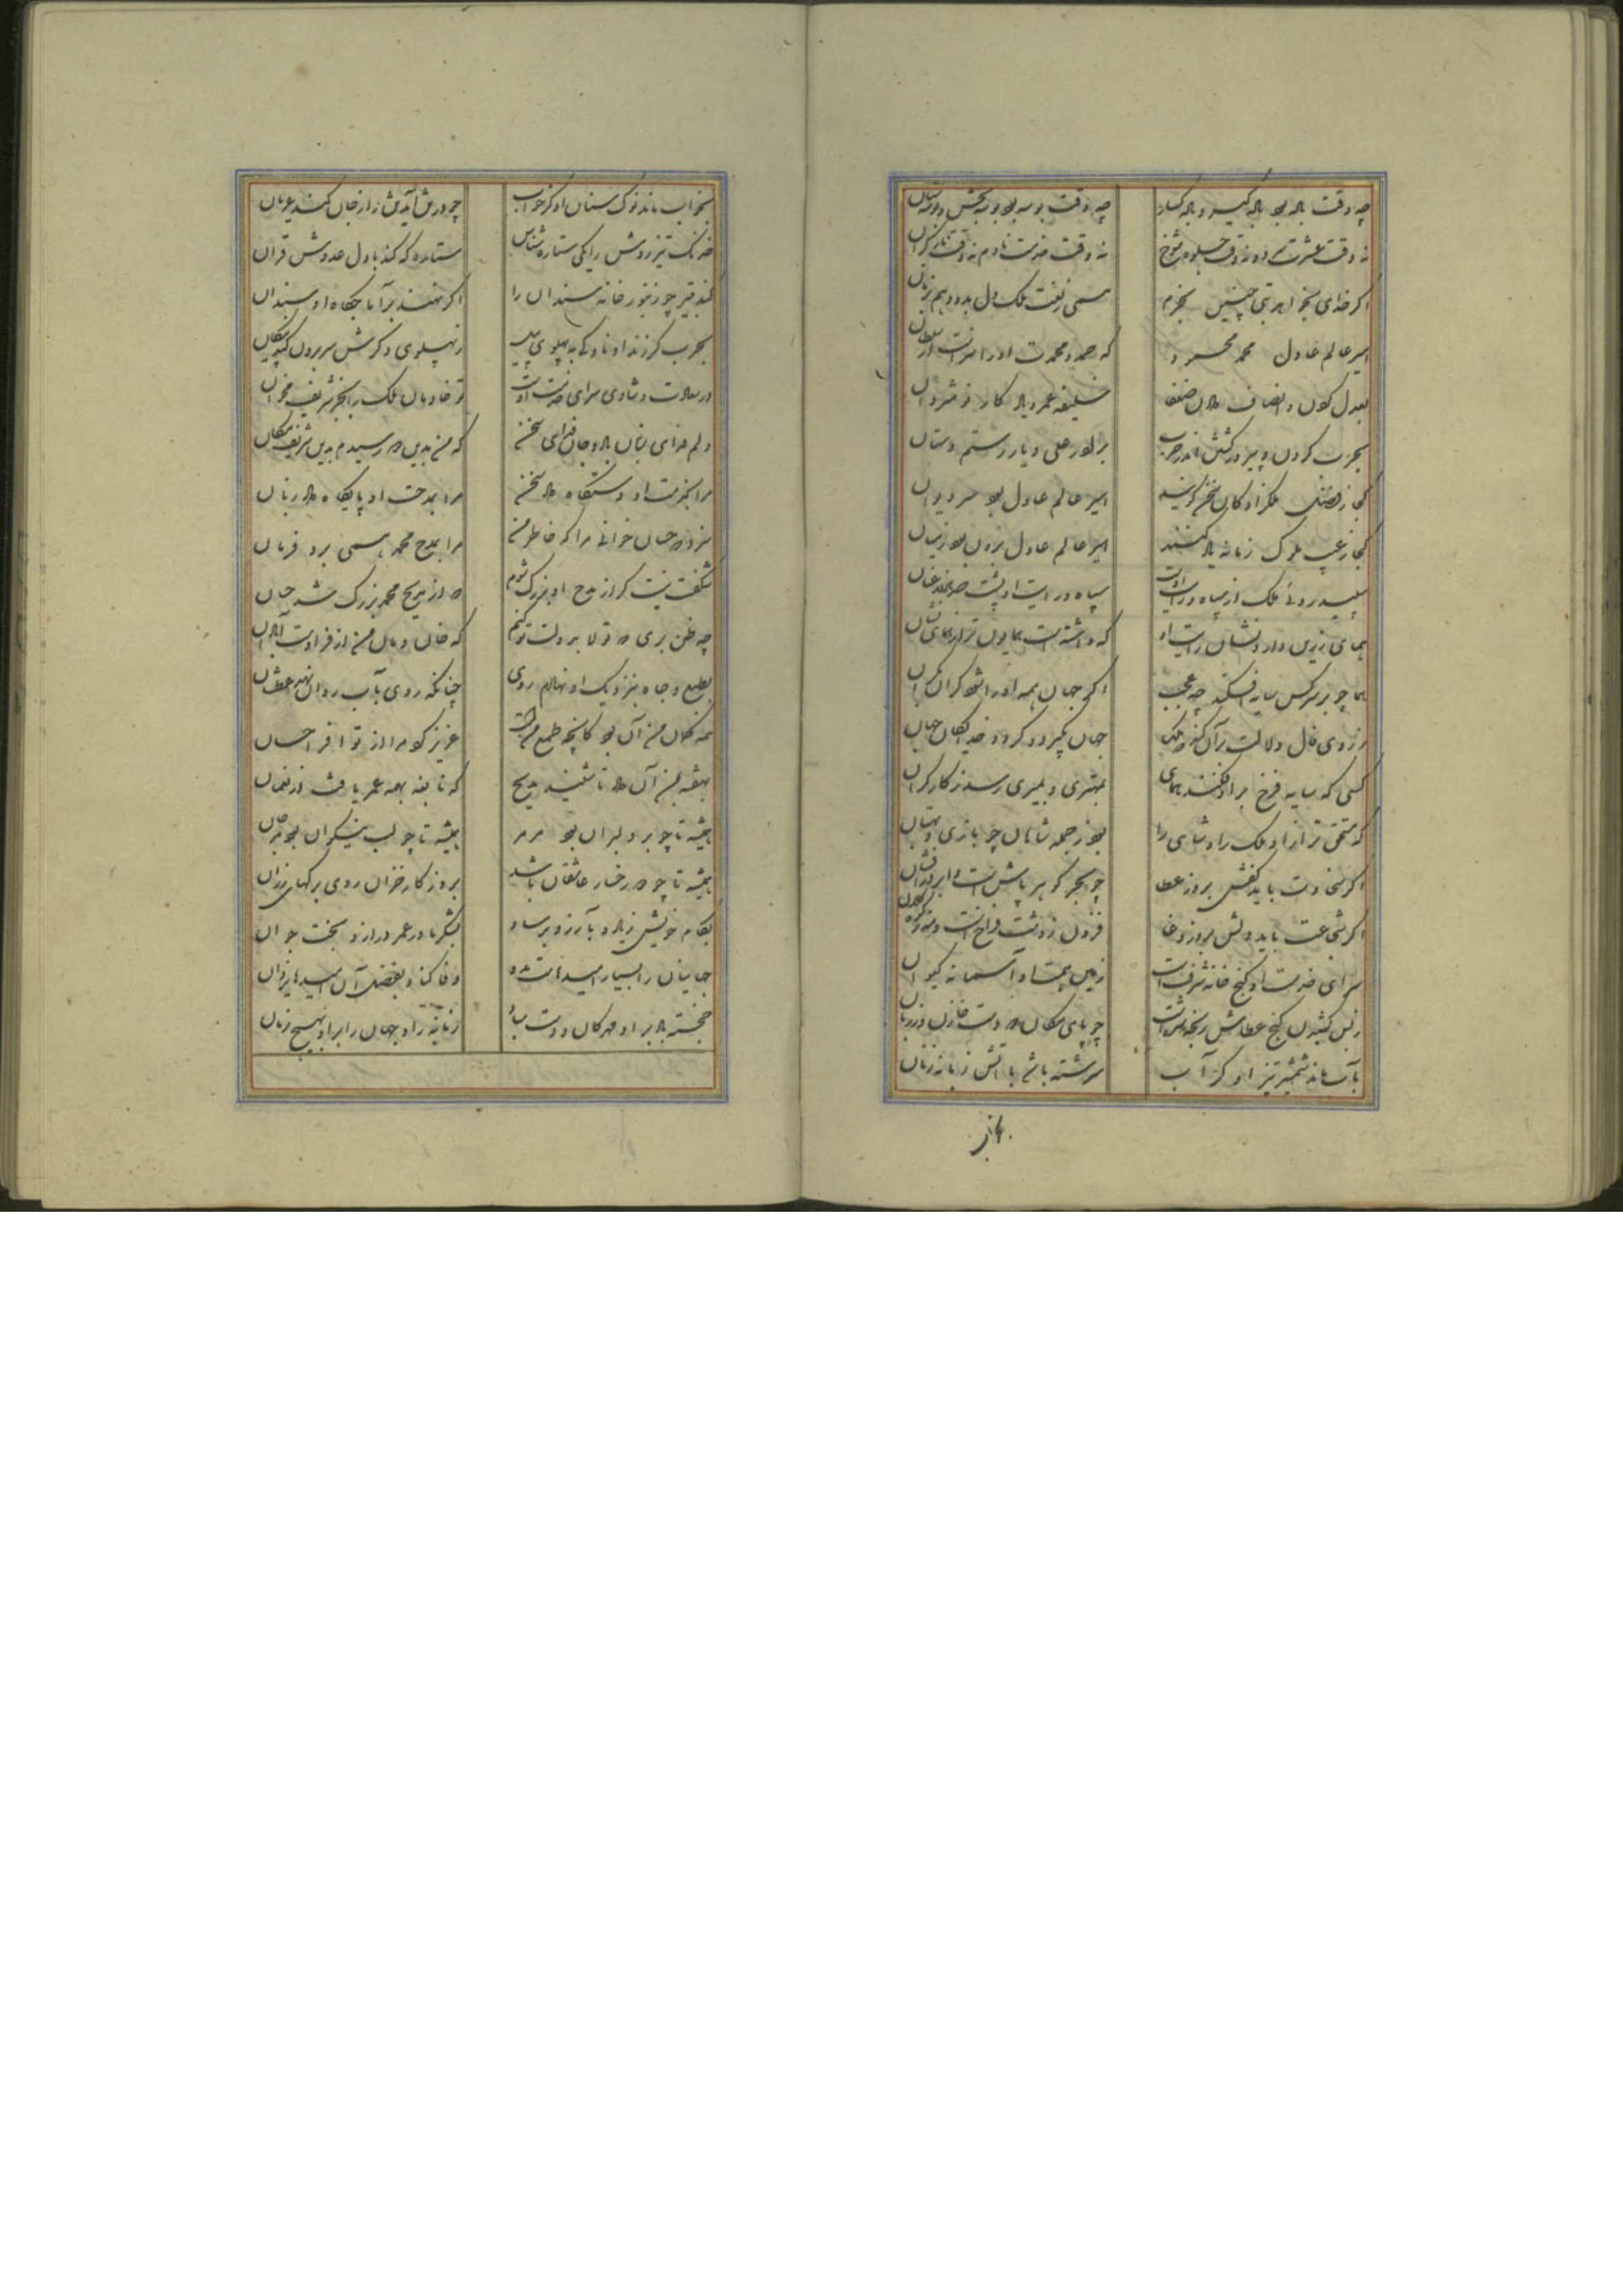 چه وقت باده بود باده گیر و باده گسار چه وقت بوسه بود بوسه بخش و بوسه ستان
نه وقت عشرت سرد و نه وقت جلوه شوخ نه وقت خدمت نادم نه وقت ناز گران
اگر خدای بخواهد بتی چنین بخرم همی ز نعت ملک دل بدو دهم
امیر عالم عادل محمد محمود که حمد و محمدت او را سزاست از
بعدل کردن و انصاف دادن ضعفا خلیفه عمر و یادگار نوشروان
بحرب کردن و پیروز گشتن اندر حرب برادر علی و یار رستم دستان
کجا ز فضل ملکزادگان سخن گویند امیر عالم عادل بود سر دیوان
کجا ز عیب ملوک زمانه یاد کنند امیر عالم عادل برون بود ز میان
سپید رویی ملک از سیاه رایت اوست سیاه رایت او پشت صد هزار عنان
همای زرین دارد نشان رایت او که داشته است همایون تر از همای نشان
هما چو بر سر کس سایه افکند چه عجب اگر جهان همه او را شود کران بکران
ز روی فال دلالت بر آن کند که ملک جهان بگیرد و گردد خدایگان جهان
کسی که سایه فرخ بر او فکند همای بمهتری و بمیری رسد ز کار گران
که مستحق تر ازو ملک را و شاهی را بود ز جمله شاهان چو بازی و بهمان
اگر سخاوت باید کفش بروز عطا چو بحر گوهر پاش است و ابر
اگر شجاعت باید دلش بروز وغا فزون ز دشت فراخ است و
سرای خدمت او گنج خانه شرف است زمین همتا و آسمانه کیوان
ز بس کشیدن گنج عطاش رنجه شده است چو پای سگان دو دست خازن و وزان
بآب ماند شمشیر تیز او گر آب سرشته باشد با آتش زبانه زنان
بخواب
بخواب ماند نوک سنان او گر خواب چو در تن آید تن را ز جان کند عریان
خدنگ تیز روش را یکی ستاره شناس ستاره که کند با دل عدوش قران
کند بتیر چو زنبور خانه سندان را اگر نهند بر آماجگاه او سندان
بحرب گر زند او ناوکی به پهلوی پیل ز پهلوی دگرش سر برون کند پیکان
در سعادت و شادی سرای خدمت اوست تو خادمان ملک را بجز شریف مخوان
دلم فدای زبان باد و جان فدای سخن که من بدین دو رسیدم بدین شریف مکان
مرا بخدمت او دستگاه داد سخن مرا بمدحت او پایگاه داد زبان
سزد که حسان خوانی مرا که خاطر من مرا بمدح محمد همی برد فرمان
شگفت نیست گر از مدح او بزرگ شوم که از مدیح محمد بزرگ شد حسان
چه ظن بری که تولا بدولت تو کنم که خان و مان من از فر اوست آبادان
بطبع و جاه بنزدیک او نهادم روی چنانکه روی بآب روان نهد عطشان
همه گمان من آن بود کانچه طمع من است عزیز کو مرا از تو افر احسان
بهفته بمن آن داد تا شنید مدیح که نابغه بهمه عمر یافت از نعمان
همیشه تا چو بر دلبران بود مرمر همیشه تا چو لب نیکوان بود مرجان
همیشه تا چو رخسار عاشقان باشد بروزگار خزان روی برگهای رزان
بکام خویش زیاد و بآرزو برساد بشکر باد ز عمر دراز و بخت جوان
جهانیان را بسیار امیدهاست بدو وفا کناد بفضل آن امیدها یزدان
خجسته باد بر او مهرگان و دست مباد زمانه را و جهان را بر او بهیچ زمان